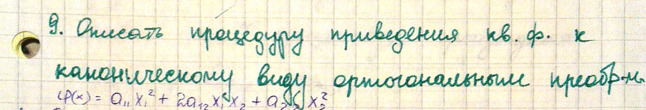 9. Описать процедуру приведения кв. ф. к
каноническому виду ортогональным преобр-м.
φ(x) = a₁₁x₁² + 2a₁₂x₁x₂ + a₂₂x₂²